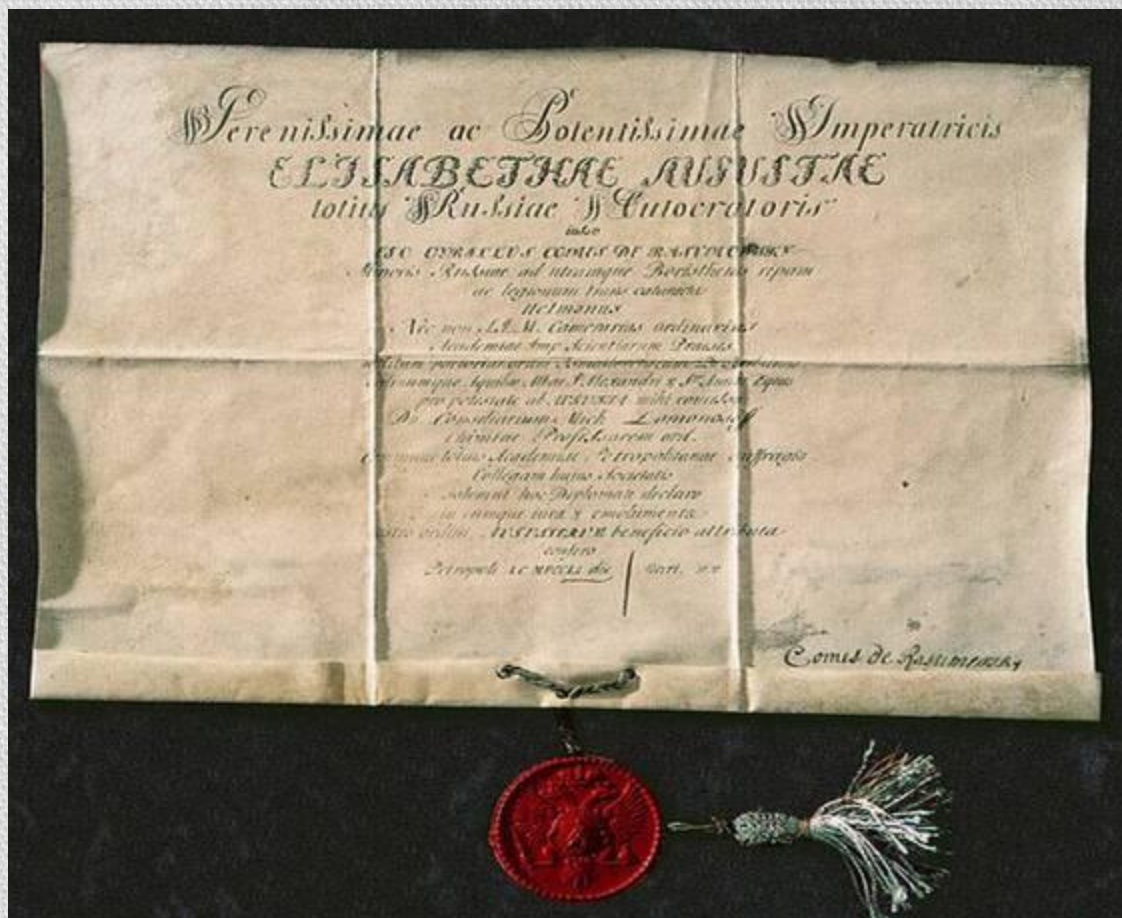 Serenissimae ac Potentissimae Imperatricis
ELISABETHAE AUGUSTAE
totius Russiae Autocratoris
iussu
EGO CYRILLUS COMES DE RASUMOWSKY
Minoris Russiae ad utramque Boristhenis ripam
ac legionum trans
Hetmanus
Nec non S.I.M. Camerarius ordinarius
Academiae Imp. Scientiarum Praeses
Aquilae Albae S. Alexandri & Stae Annae Eques
pro potestate ab AUGUSTA mihi concessa
Dn. Consiliarium Mich. Lomonosoff
Chimiae Professorem ord.
totius Academiae Petropolitanae suffragio
Collegam huius Societatis
solemni hoc Diplomate declaro
in eumque iura & emolumenta
ordini AUGUSTAE beneficio attributa
confero
Petropoli die
Comes de Rasumowsky